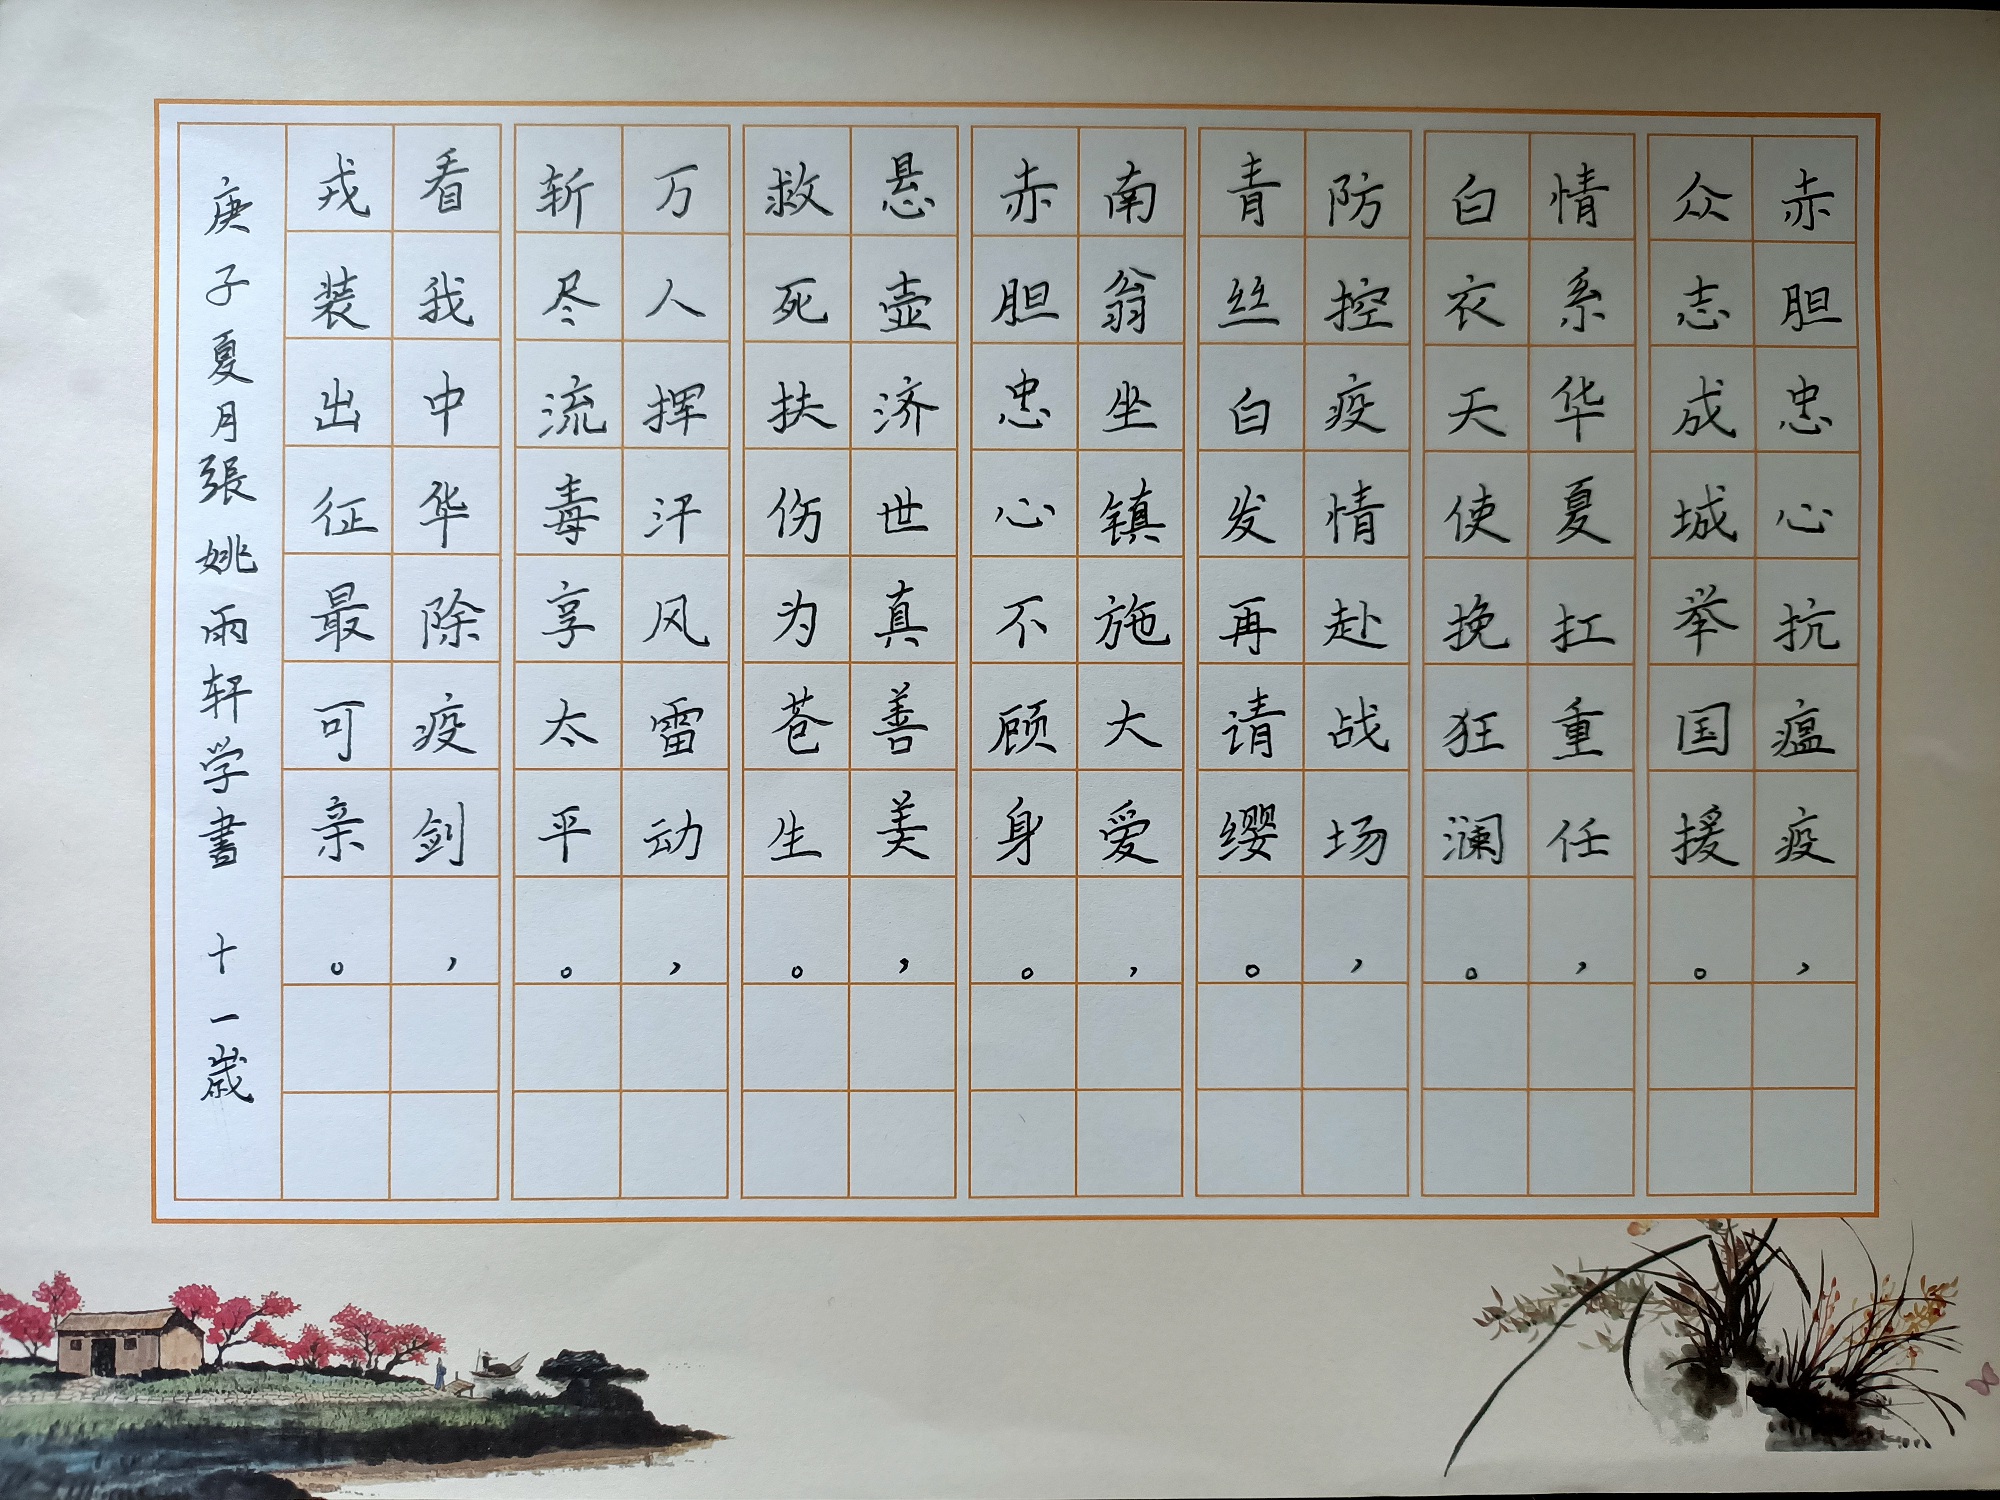 赤胆忠心抗瘟疫，
众志成城举国援。
情系华夏扛重任，
白衣天使挽狂澜。
防控疫情赴战场，
青丝白发再请缨。
南翁坐镇施大爱，
赤胆忠心不顾身。
悬壶济世真善美，
救死扶伤为苍生。
万人挥汗风雷动，
斩尽流毒享太平。
看我中华除疫剑，
戎装出征最可亲。
庚子夏月張姚雨轩学書 十一歲